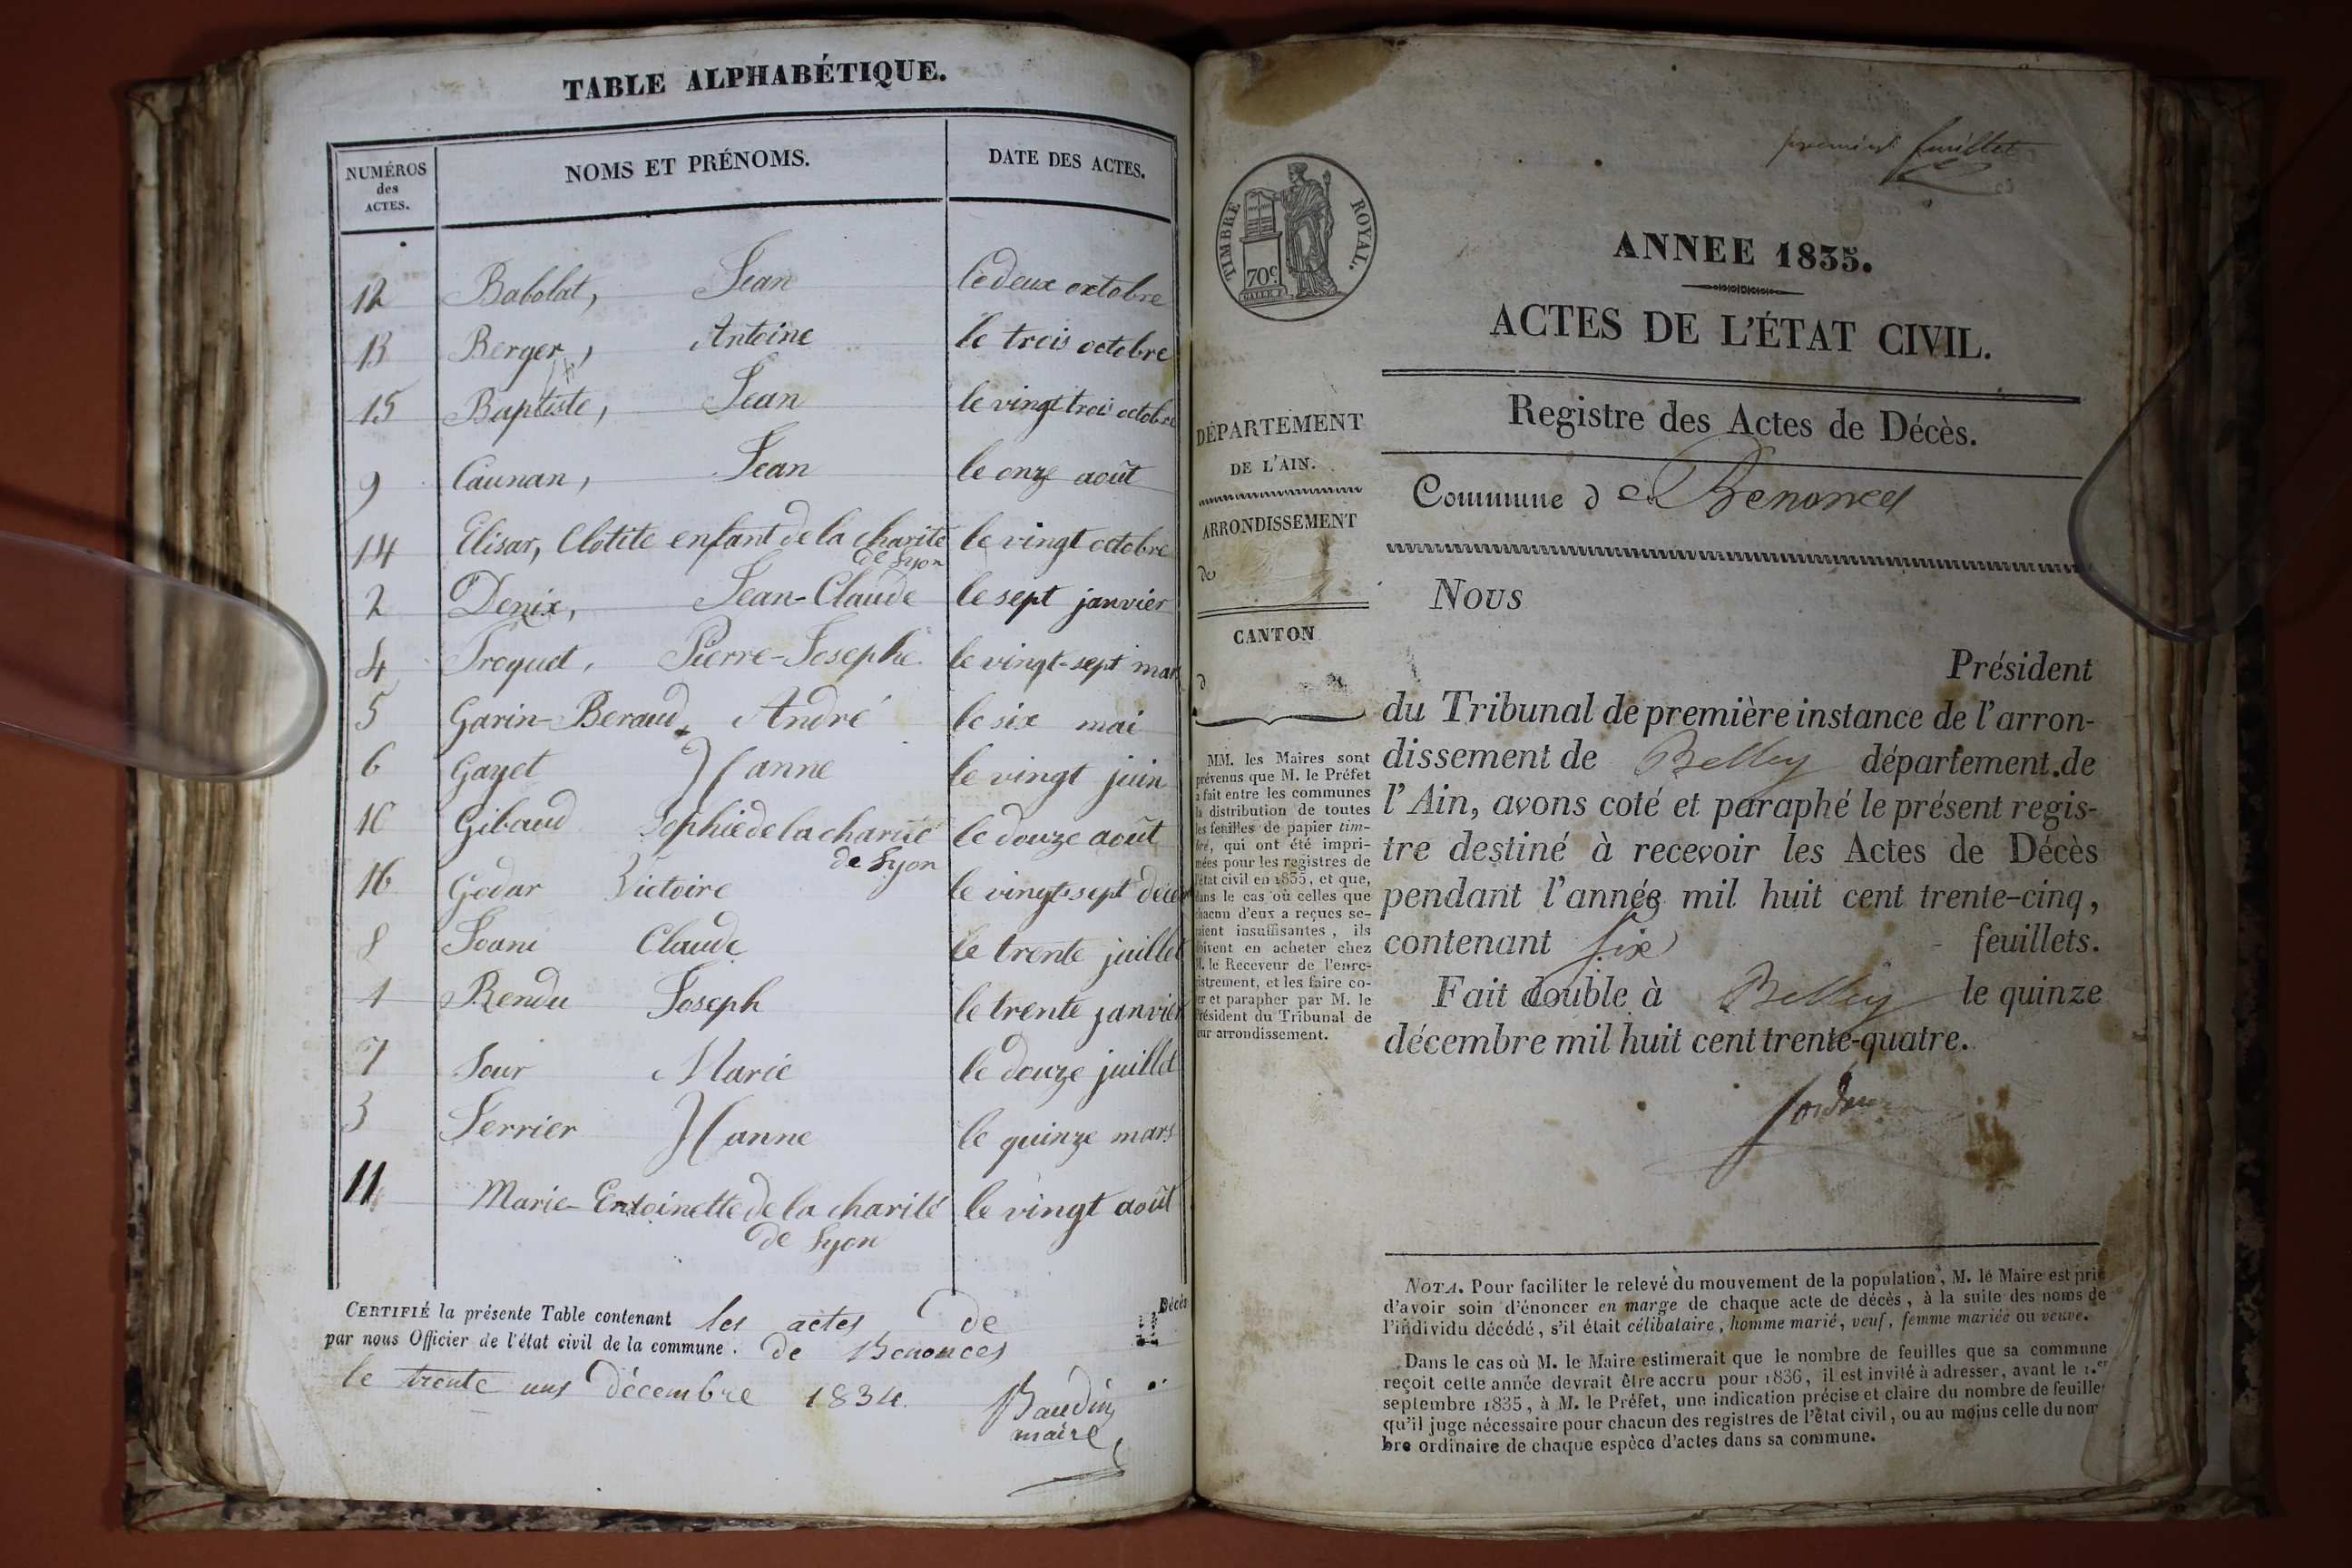 TABLE ALPHABÉTIQUE.
NUMÉROS des ACTES. NOMS ET PRÉNOMS. DATE DES ACTES.
12 Babolat, Jean le deux octobre
13 Berger, Antoine le trois octobre
15 Baptiste, Jean le vingt trois octobre
9 Caunan, Jean le onze août
14 Elisar, Clotite enfant de la charité de Lyon le vingt octobre
2 Denix, Jean-Claude le sept janvier
4 Froquet, Pierre-Joseph le vingt-sept mars
5 Garin-Beraud, André le six mai
6 Gayet Hanne le vingt juin
10 Gibaud Sophie de la charité de Lyon le douze août
16 Godar Victoire le vingt-sept décem
8 Joani Claude le trente juillet
1 Rendu Joseph le trente janvier
7 Sour Marie le douze juillet
3 Ferrier Hanne le quinze mars
11 Marie-Entoinette de la charité de Lyon le vingt août
CERTIFIÉ la présente Table contenant les actes de Décès
par nous Officier de l'état civil de la commune de Benonces
le trente un décembre 1834.
Baudin
maire
premier feuillet
TIMBRE ROYAL.
70c
ANNEE 1835.
ACTES DE L'ÉTAT CIVIL.
Registre des Actes de Décès.
Commune de Benonces
DÉPARTEMENT
DE L'AIN.
ARRONDISSEMENT
de
CANTON
d
MM. les Maires sont
prévenus que M. le Préfet
a fait entre les communes
la distribution de toutes
les feuilles de papier tim-
bré, qui ont été impri-
mées pour les registres de
l'état civil en 1835, et que,
dans le cas où celles que
chacun d'eux a reçues se-
raient insuffisantes, ils
doivent en acheter chez
M. le Receveur de l'enre-
gistrement, et les faire co-
ter et parapher par M. le
Président du Tribunal de
leur arrondissement.
Nous
Président
du Tribunal de première instance de l'arron-
dissement de Belley département de
l'Ain, avons coté et paraphé le présent regis-
tre destiné à recevoir les Actes de Décès
pendant l'année mil huit cent trente-cinq,
contenant six feuillets.
Fait double à Belley le quinze
décembre mil huit cent trente-quatre.
NOTA. Pour faciliter le relevé du mouvement de la population, M. le Maire est prié
d'avoir soin d'énoncer en marge de chaque acte de décès, à la suite des noms de
l'individu décédé, s'il était célibataire, homme marié, veuf, femme mariée ou veuve.
Dans le cas où M. le Maire estimerait que le nombre de feuilles que sa commune
reçoit cette année devrait être accru pour 1836, il est invité à adresser, avant le 1.er
septembre 1835, à M. le Préfet, une indication précise et claire du nombre de feuilles
qu'il juge nécessaire pour chacun des registres de l'état civil, ou au moins celle du nom
bre ordinaire de chaque espèce d'actes dans sa commune.